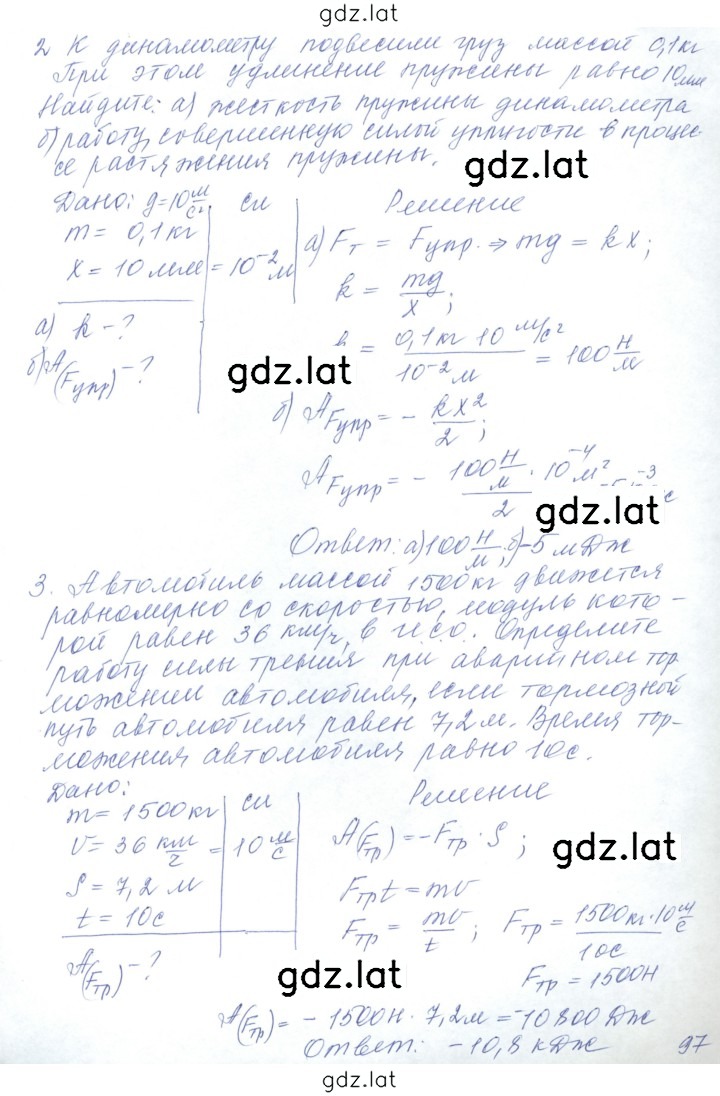 gdz.lat
2 К динамометру подвесили груз массой 0,1 кг
При этом удлинение пружины равно 10 мм
Найдите: а) жесткость пружины динамометра
б) работу, совершенную силой упругости в процес-
се растяжения пружины.
gdz.lat
Дано: g=10 м/с² СИ Решение
m = 0,1 кг
x = 10 мм = 10⁻² м
а) Fт = Fупр. ⇒ mg = kx;
k = mg/x;
а) k - ?
k = 0,1 кг 10 м/с² / 10⁻² м = 100 Н/м
б) A(Fупр) - ?
gdz.lat
б) AFупр = - kx²/2;
AFупр = - 100 Н/м · 10⁻⁴ м² / 2
gdz.lat
Ответ: а) 100 Н/м; б) -5 мДж
3. Автомобиль массой 1500 кг движется
равномерно со скоростью, модуль кото-
рой равен 36 км/ч, в ИСО. Определите
работу силы трения при аварийном тор
можении автомобиля, если тормозной
путь автомобиля равен 7,2 м. Время тор-
можения автомобиля равно 10с.
Дано: СИ Решение
m = 1500 кг
υ = 36 км/ч = 10 м/с
A(Fтр) = -Fтр · S;
gdz.lat
S = 7,2 м
Fтр t = mυ
t = 10с
Fтр = mυ/t; Fтр = 1500кг·10 м/с / 10с
A(Fтр) - ?
Fтр = 1500Н
gdz.lat
A(Fтр) = - 1500Н · 7,2м = -10800 Дж
Ответ: -10,8 кДж
97
gdz.lat